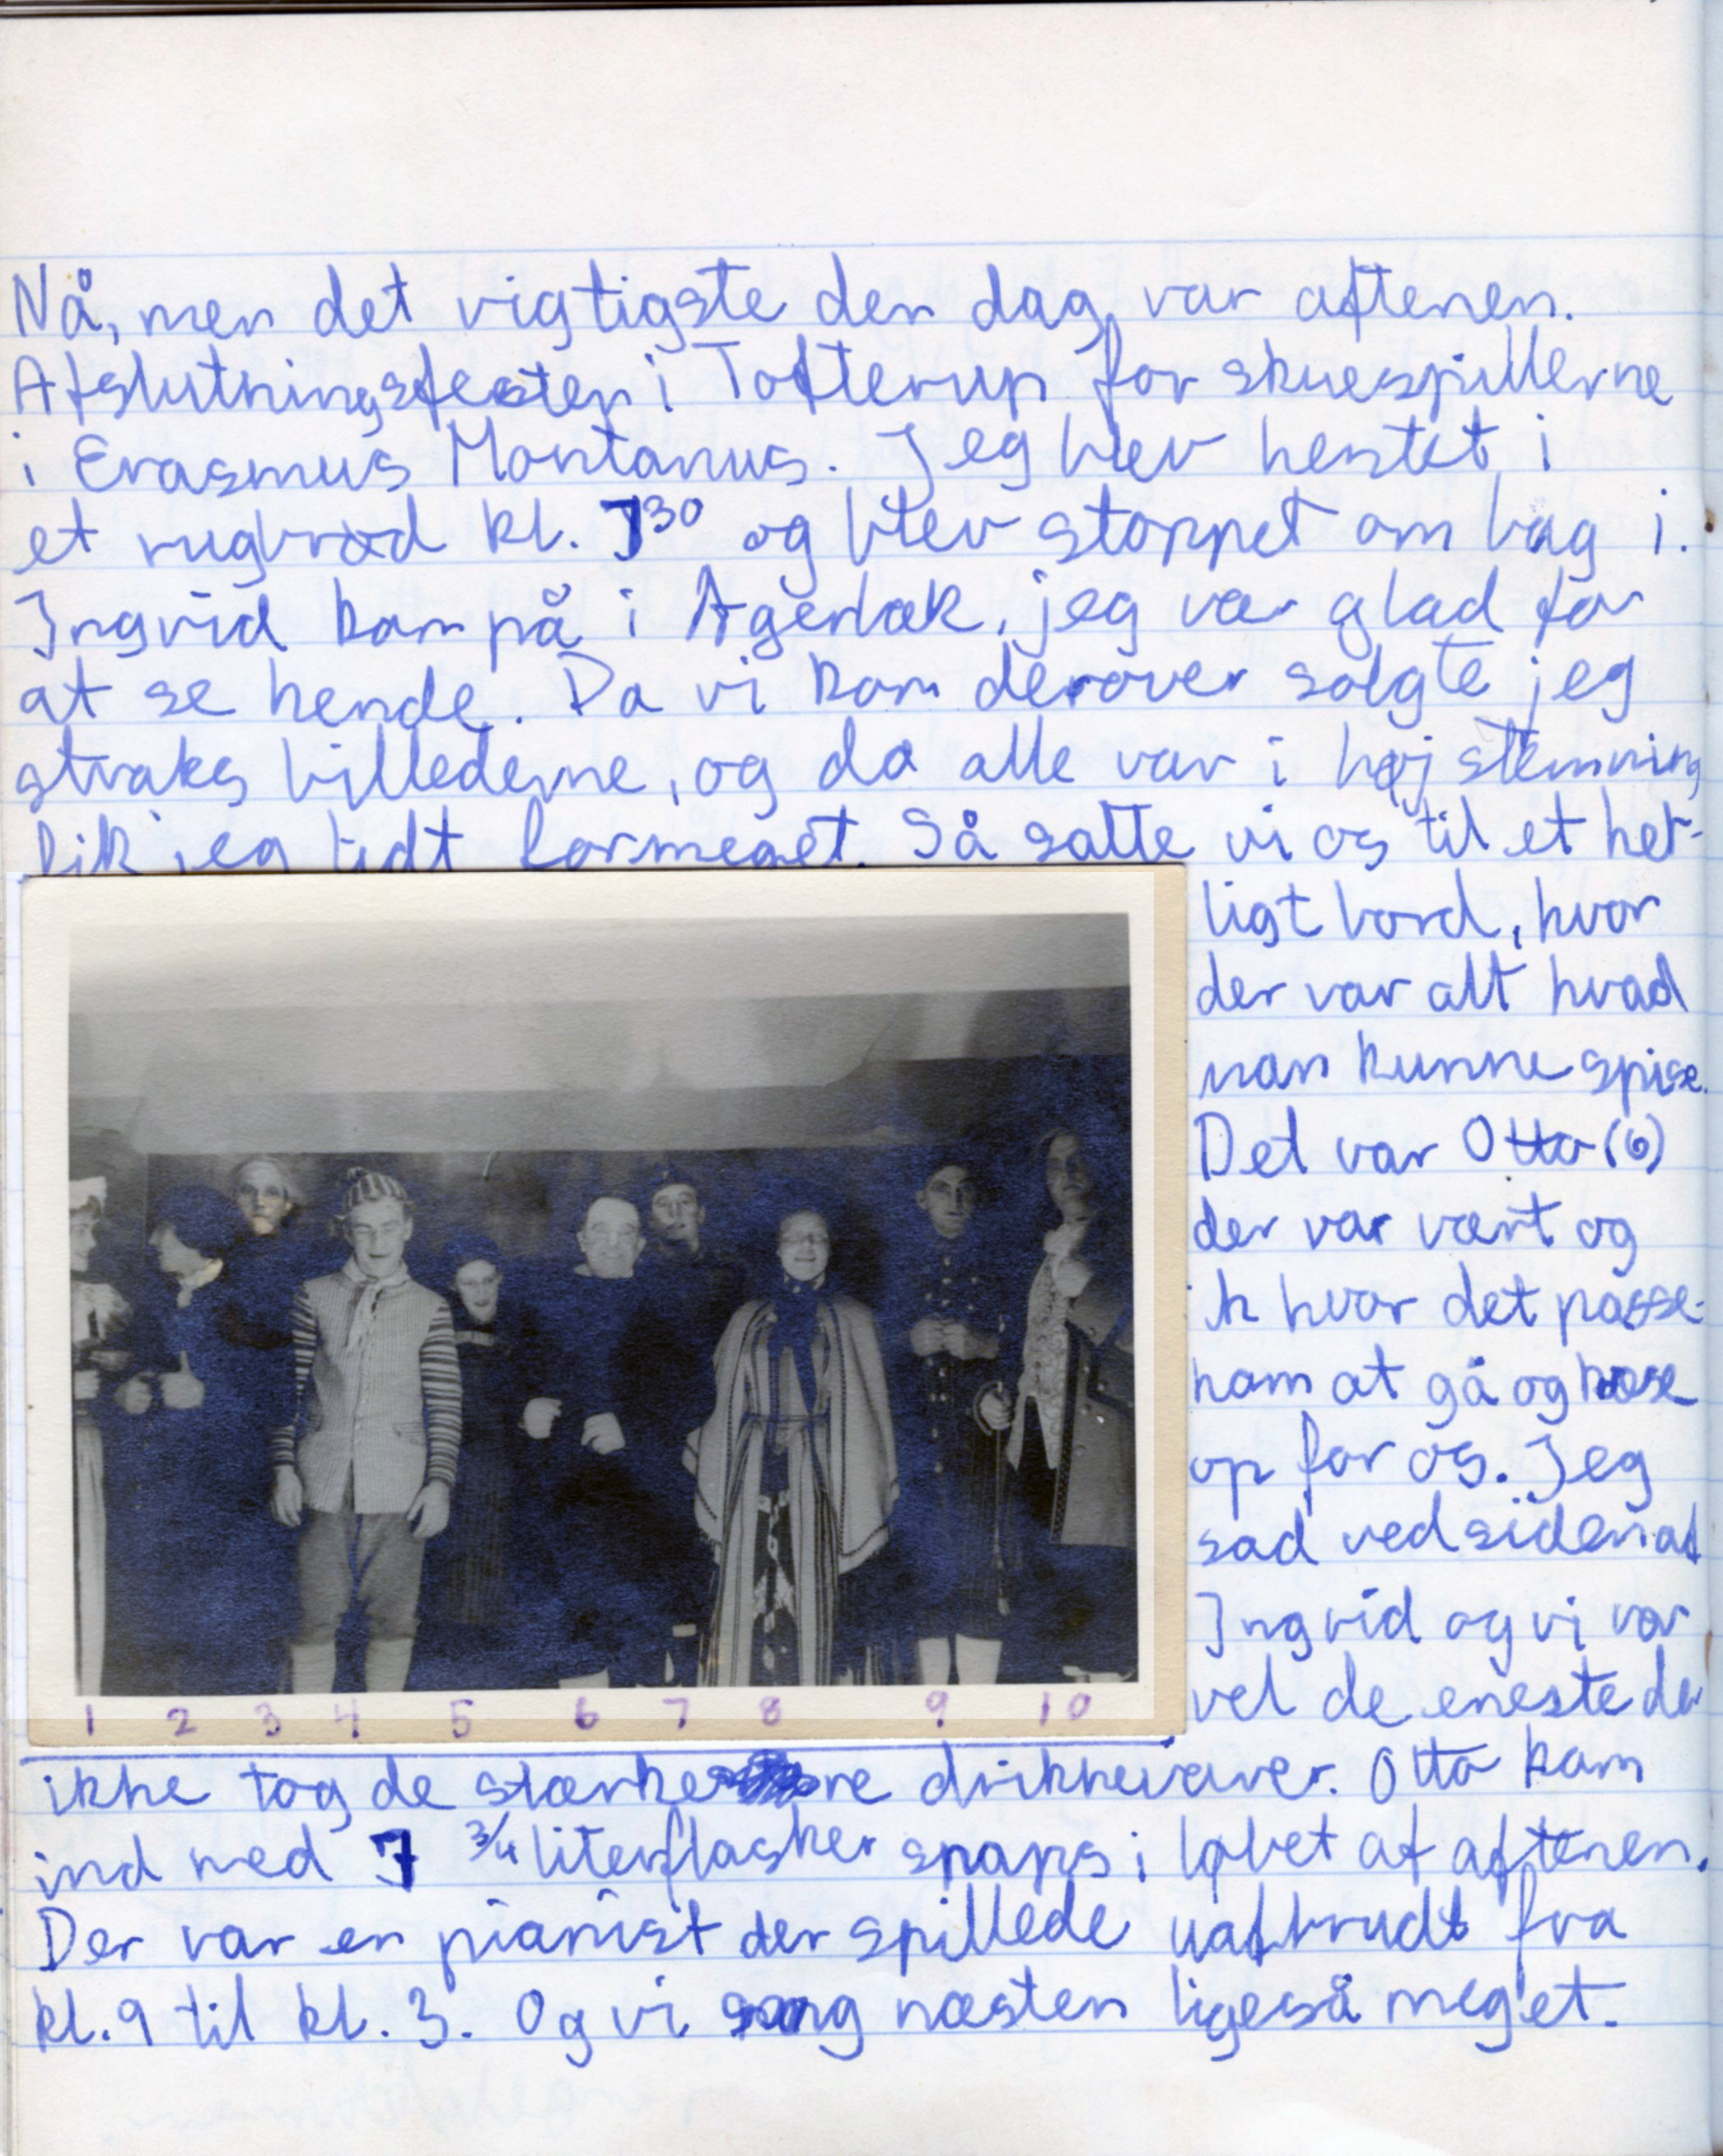 Nå, men det vigtigste den dag var aftenen.
Afslutningsfesten i Tofterup for skuespillerne
i Erasmus Montanus. Jeg blev hentet i
et rugbrød kl. 7³⁰ og blev stoppet om bag i.
Ingrid kom på i Agerbæk, jeg var glad for
at se hende. Da vi kom derover solgte jeg
straks billederne, og da alle var i høj stemning
fik jeg lidt formeget. Så satte vi os til et her-
ligt bord, hvor
der var alt hvad
man kunne spise.
Det var Otto (6)
der var vært og
hvor det passe-
ham at gå og
op for os. Jeg
sad ved siden af
Ingrid og vi var
vel de eneste der
1 2 3 4 5 6 7 8 9 10
ikke tog de stærkere drikkevarer. Otto kom
ind med 7 ¾ literflasker snaps i løbet af aftenen.
Der var en pianist der spillede uafbrudt fra
kl. 9 til kl. 3. Og vi sang næsten ligeså meget.